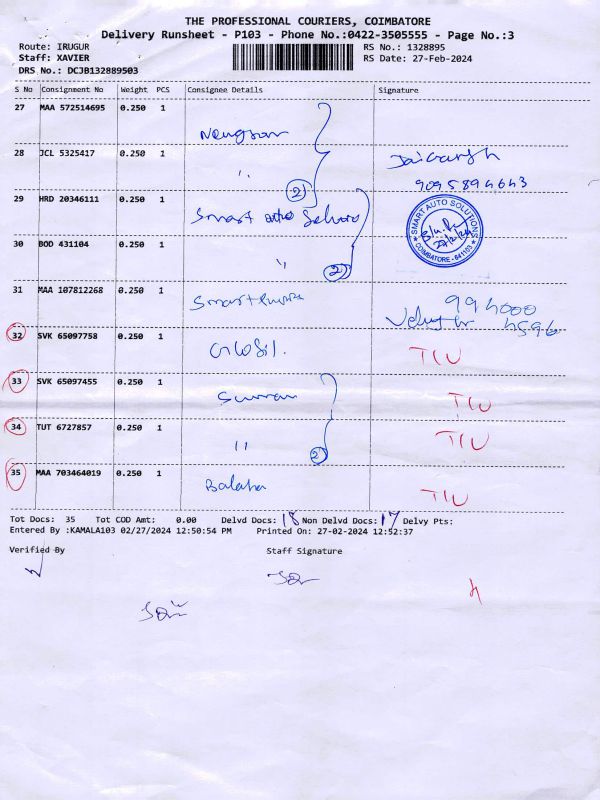 THE PROFESSIONAL COURIERS, COIMBATORE
Delivery Runsheet - P103 - Phone No.:0422-3505555 - Page No.:3
Route: IRUGUR RS No.: 1328895
Staff: XAVIER RS Date: 27-Feb-2024
DRS No.: DCJB132889503
S No Consignment No Weight PCS Consignee Details Signature
27 MAA 572514695 0.250 1
28 JCL 5325417 0.250 1
" 2
9095894643
29 HRD 20346111 0.250 1
Smart auto
SMART AUTO SOLUTIONS
COIMBATORE - 641103
30 BOD 431104 0.250 1
" 2
31 MAA 107812268 0.250 1
994000
4596
32 SVK 65097758 0.250 1
TIU
33 SVK 65097455 0.250 1
TIU
34 TUT 6727857 0.250 1
" 2 TIU
35 MAA 703464019 0.250 1
TIU
Tot Docs: 35 Tot COD Amt: 0.00 Delvd Docs: 18 Non Delvd Docs: 17 Delvy Pts:
Entered By :KAMALA103 02/27/2024 12:50:54 PM Printed On: 27-02-2024 12:52:37
Verified By Staff Signature